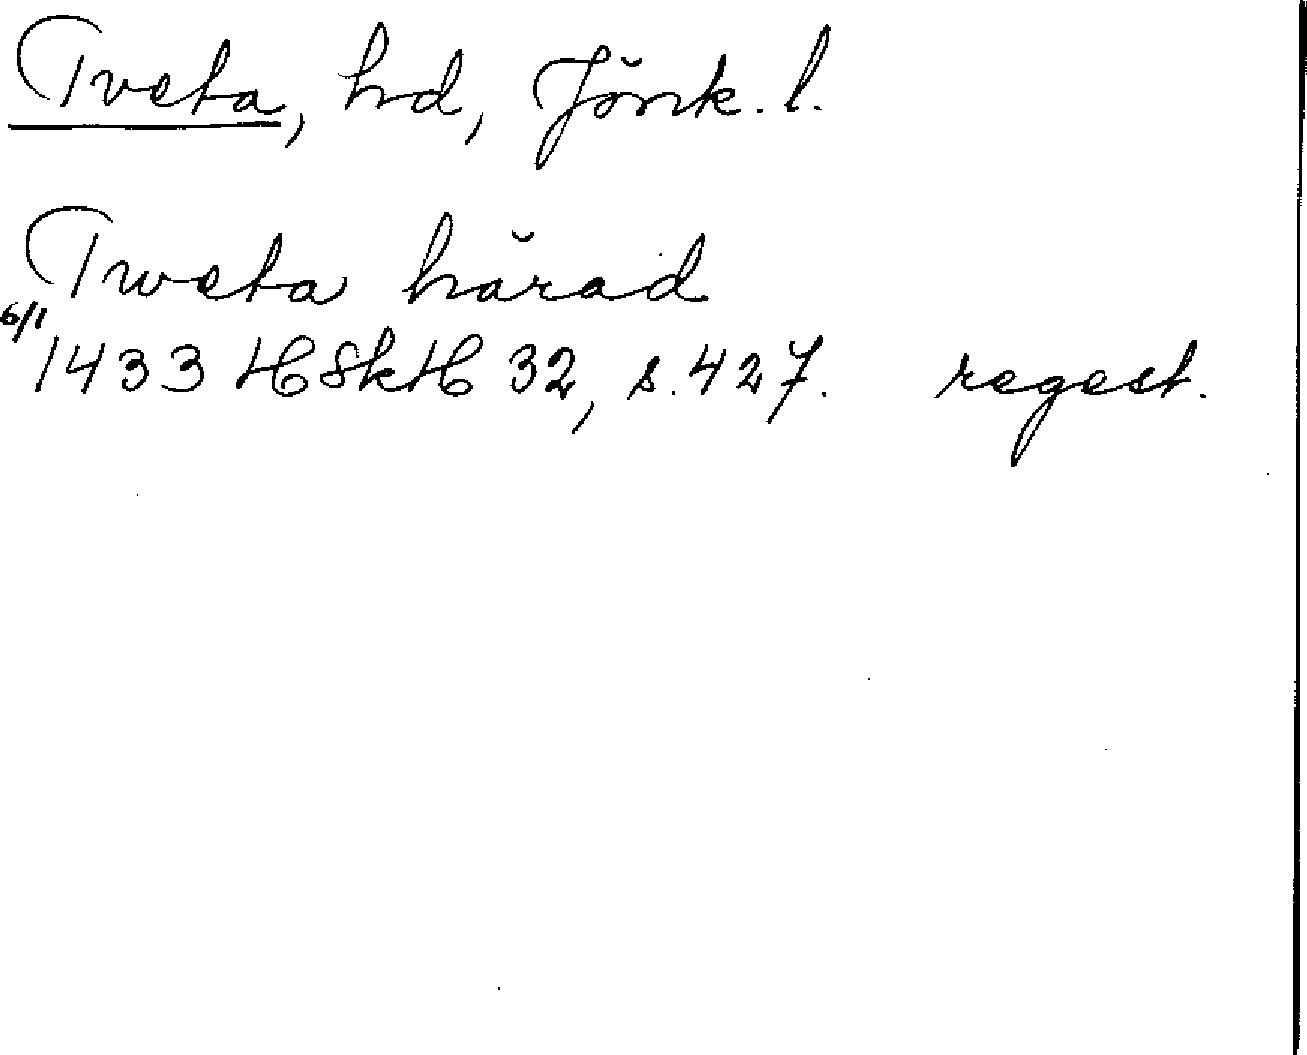 Tveta, hd, Jönk. l.
Tweta härad
6/1
1433 HSkH 32, s. 427. regest.